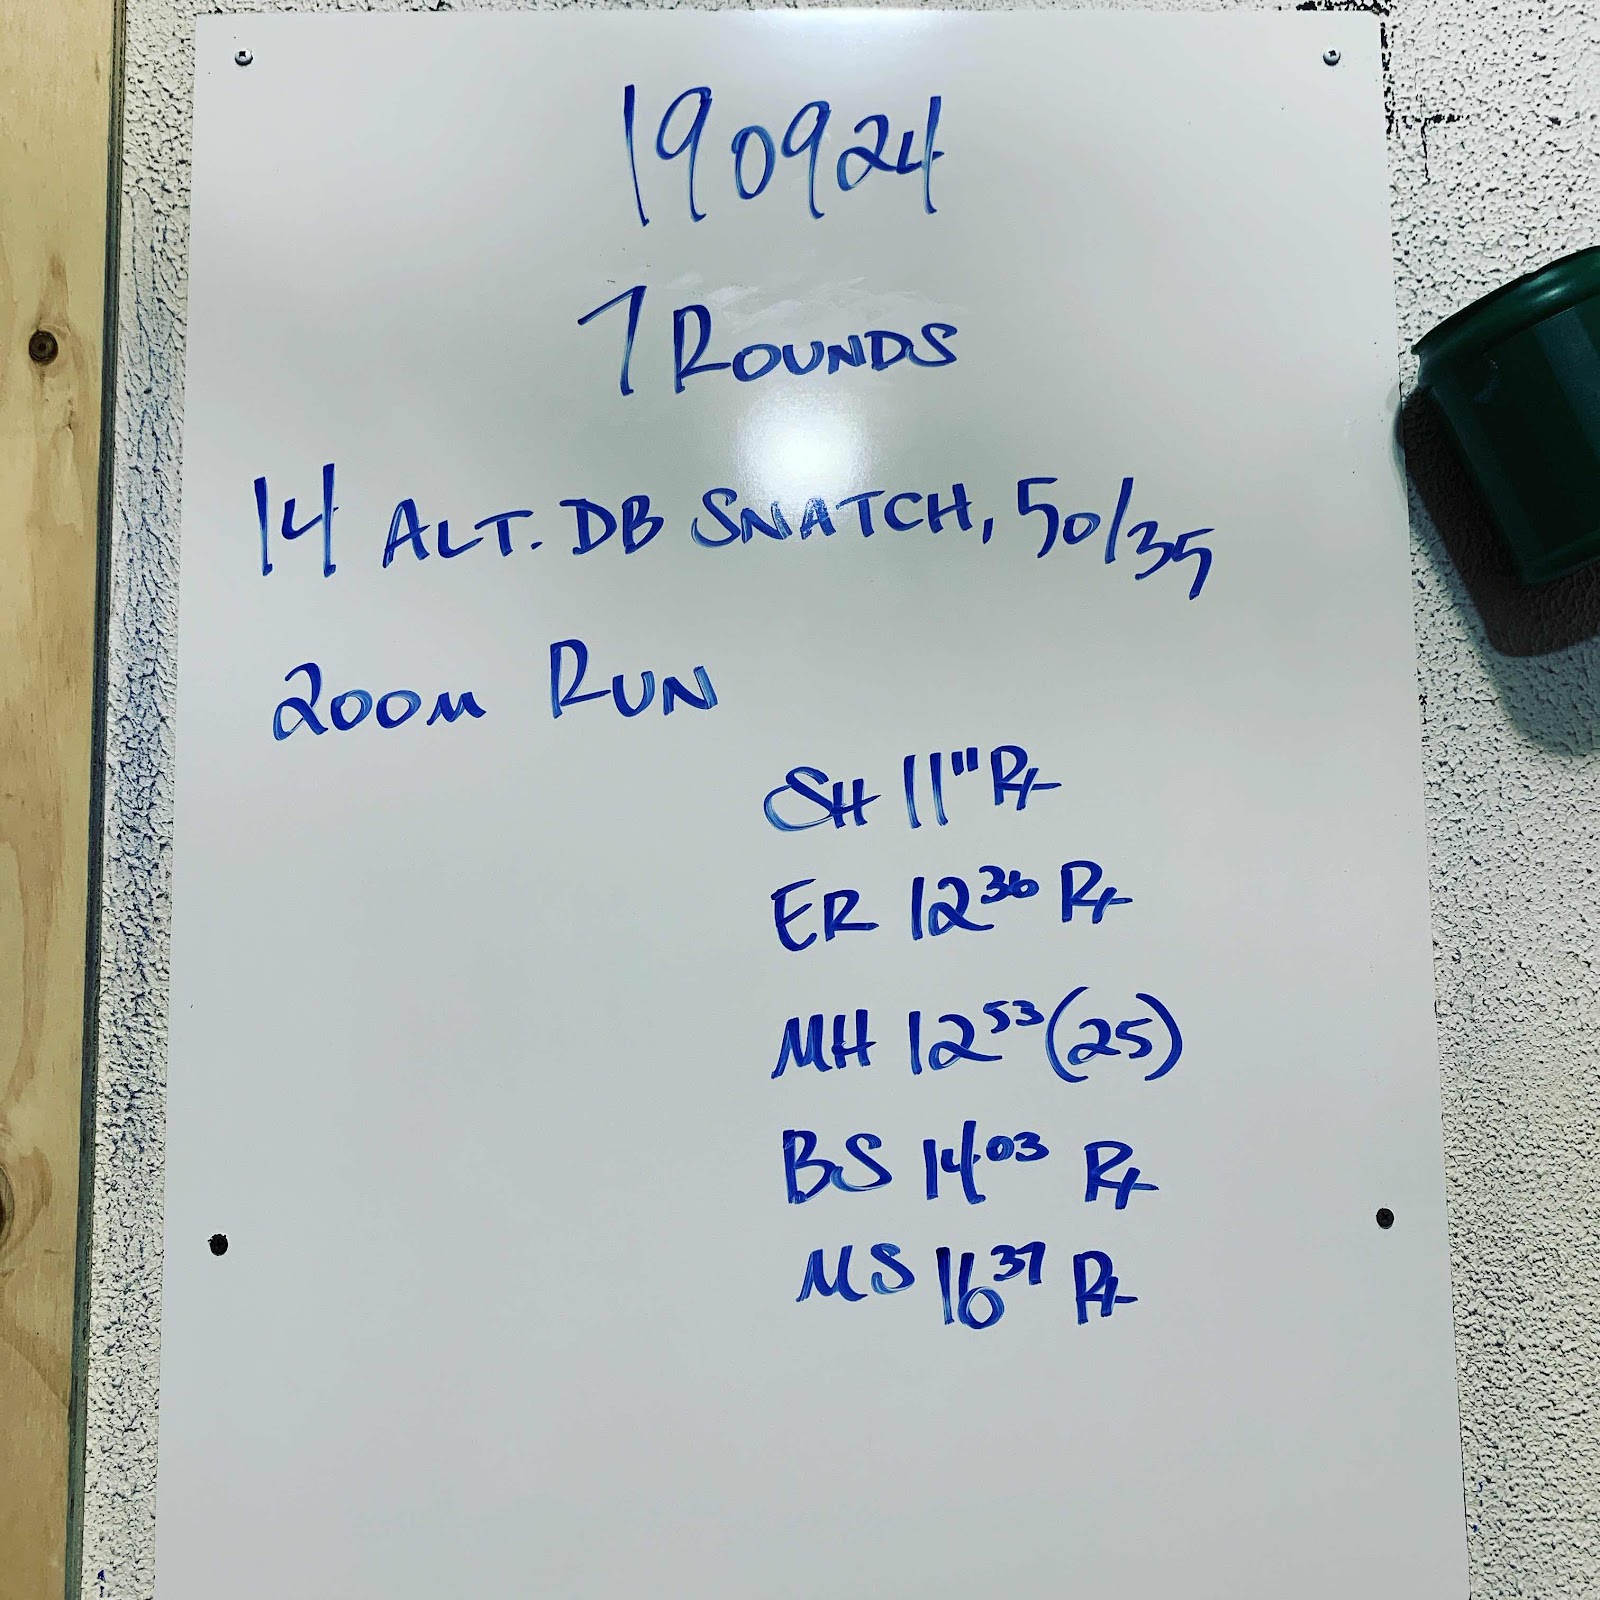 190924
7 ROUNDS
14 ALT. DB SNATCH, 50/35
200m RUN
SH 11" Rx
ER 12 36 Rx
MH 12 53 (25)
BS 14 03 Rx
MS 16 37 Rx